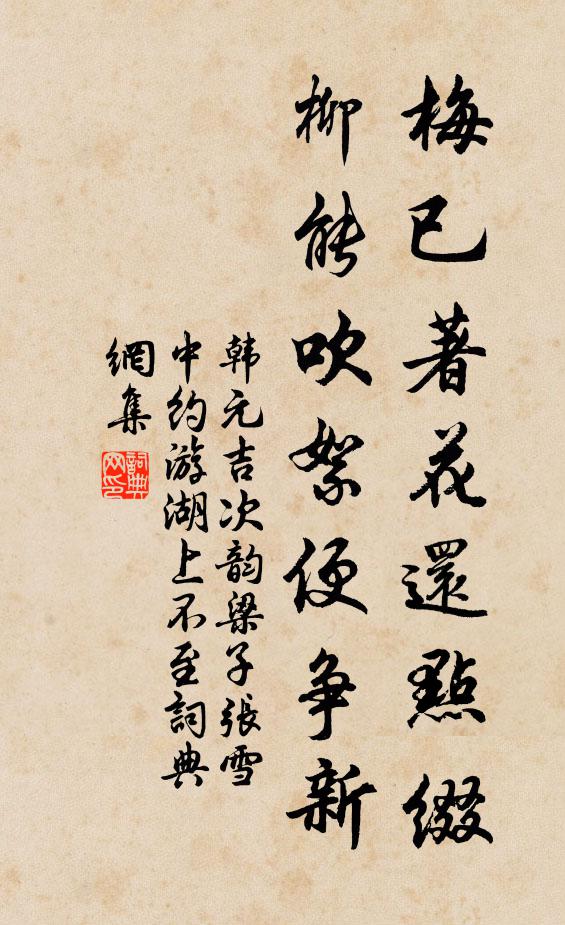 梅已著花還點綴
柳能吹絮便争新
韩元吉次韵梁子張雪
中约游湖上不至詞典
網集
詞典
网印